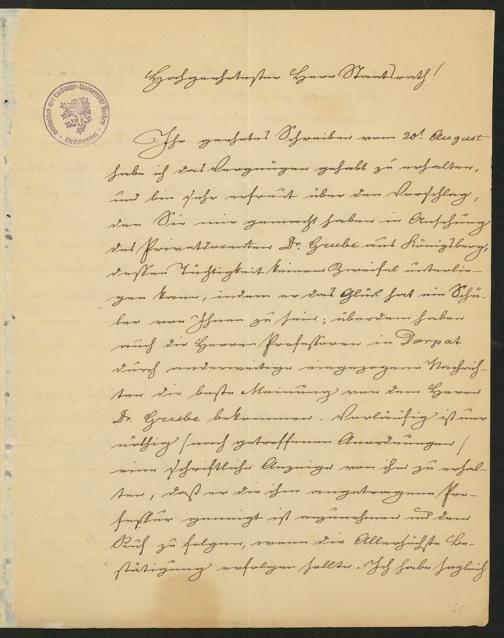 Hochgeehrtester Herr Staatsrath!
Ihr geehrtes Schreiben vom 20t August
habe ich das Vergnügen gehabt zu erhalten,
und bin sehr erfreut über den Vorschlag,
den Sie mir gemacht haben in Ansehung
des Privatdocenten Dr. Grube aus Königsberg,
dessen Tüchtigkeit keinem Zweifel unterlie-
gen kann, indem er das Glück hat ein Schü-
ler von Ihnen zu sein; überdem haben
auch die Herren Professoren in Dorpat
durch anderweitige eingezogene Nachrich-
ten die beste Meinung von dem Herrn
Dr. Grube bekommen. Vorläufig ist nur
nöthig /nach getroffenen Anordnungen/
eine schriftliche Anzeige von ihm zu erhal-
ten, daß er die ihm angetragene Pro-
fessur geneigt ist anzunehmen und dem
Ruf zu folgen, wenn die Allerhöchste Be-
stätigung erfolgen sollte. Ich habe sogleich